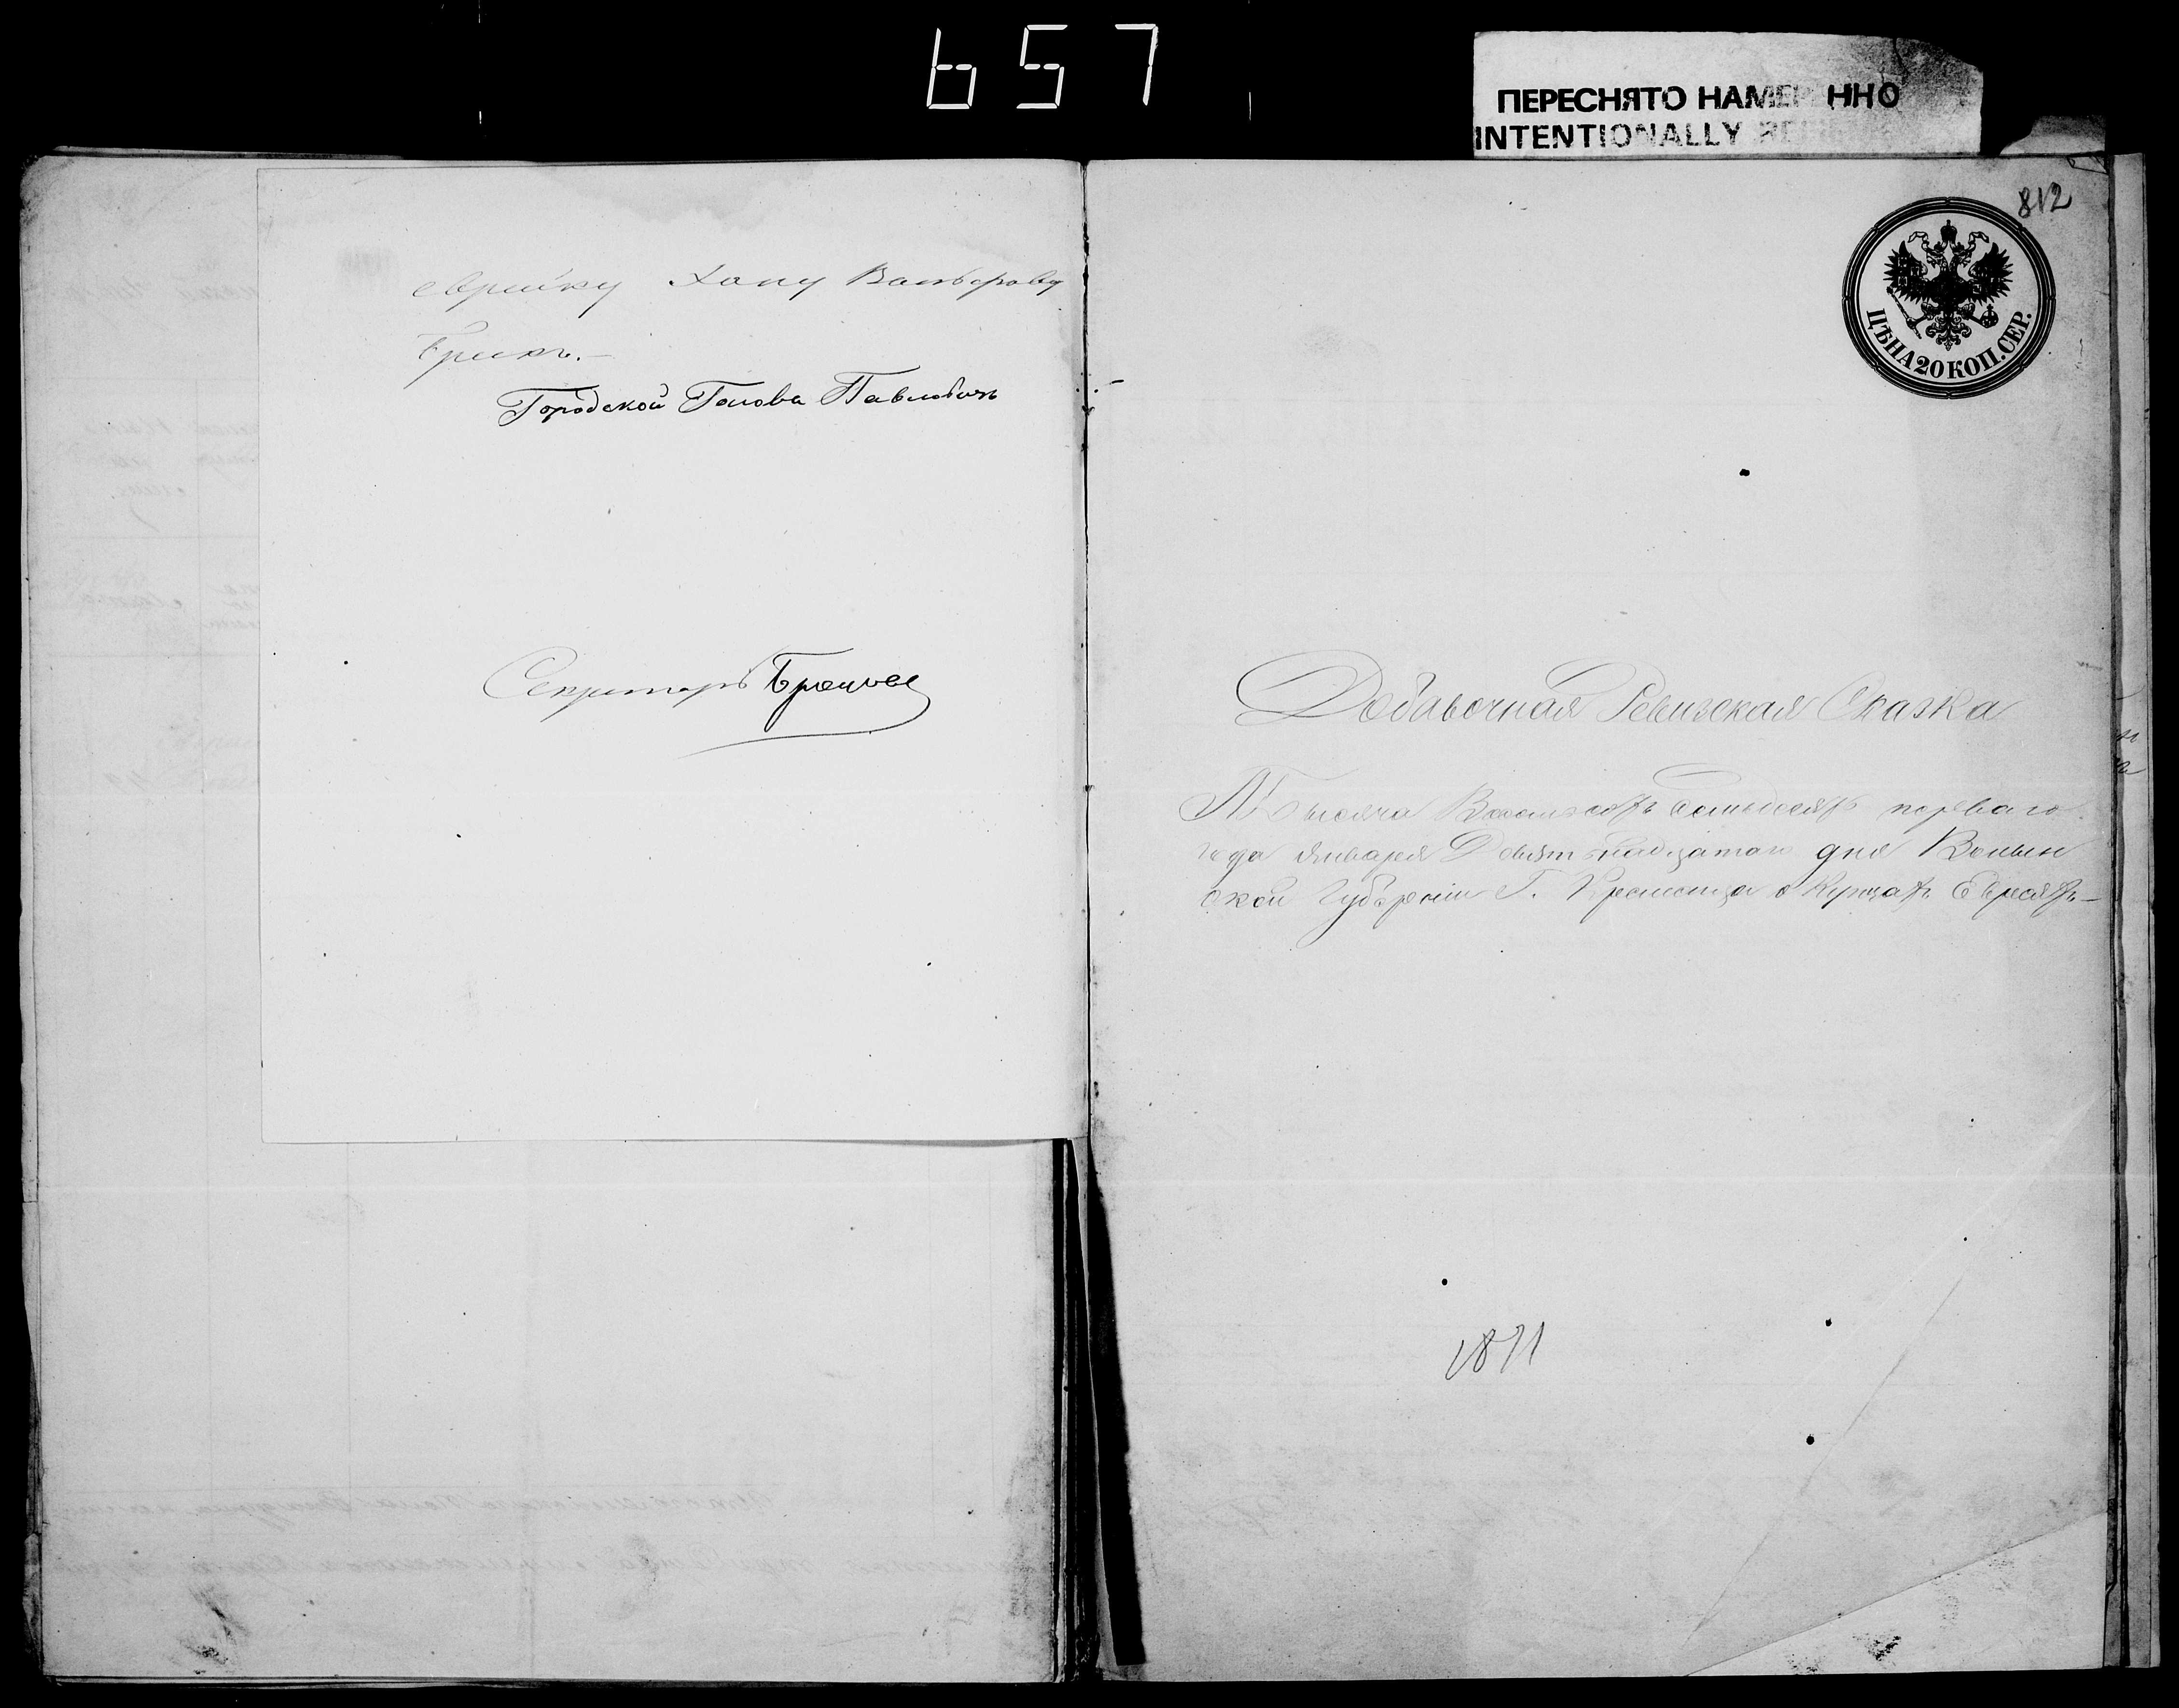 657
ПЕРЕСНЯТО НАМЕР ННО
INTENTIONALLY
812
ЦѢНА 20 КОП. СЕР.
еврейку Хану Вольфову
Брикъ.—
Городской Голова Павловичъ
Секретарь
Добавочная Ревизская Сказка
Тысяча Восемьсотъ Семьдесятъ перваго
года Января Девятнадцатаго дня Волын
ской Губерніи Г. Кременца о Купцахъ Евреяхъ—
1871